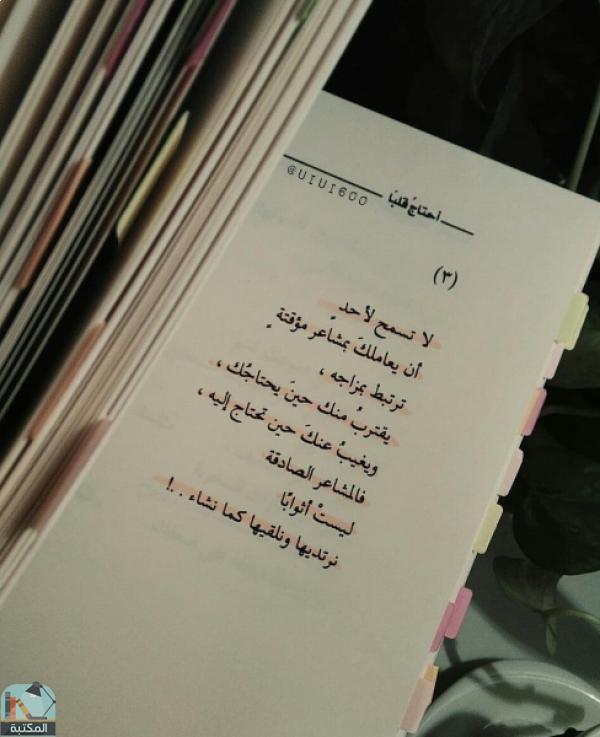 احتاجُ قلبًا
@U1U1600
(٣)
لا تسمح لأحد
أن يعاملكَ بمشاعر مؤقتة
ترتبط بمزاجه ،
يقتربُ منك حينَ يحتاجُك ،
ويغيبُ عنكَ حين تحتاج إليه ،
فالمشاعر الصادقة
ليستْ أثوابًا
نرتديها ونلقيها كما نشاء . . !
المكتبة